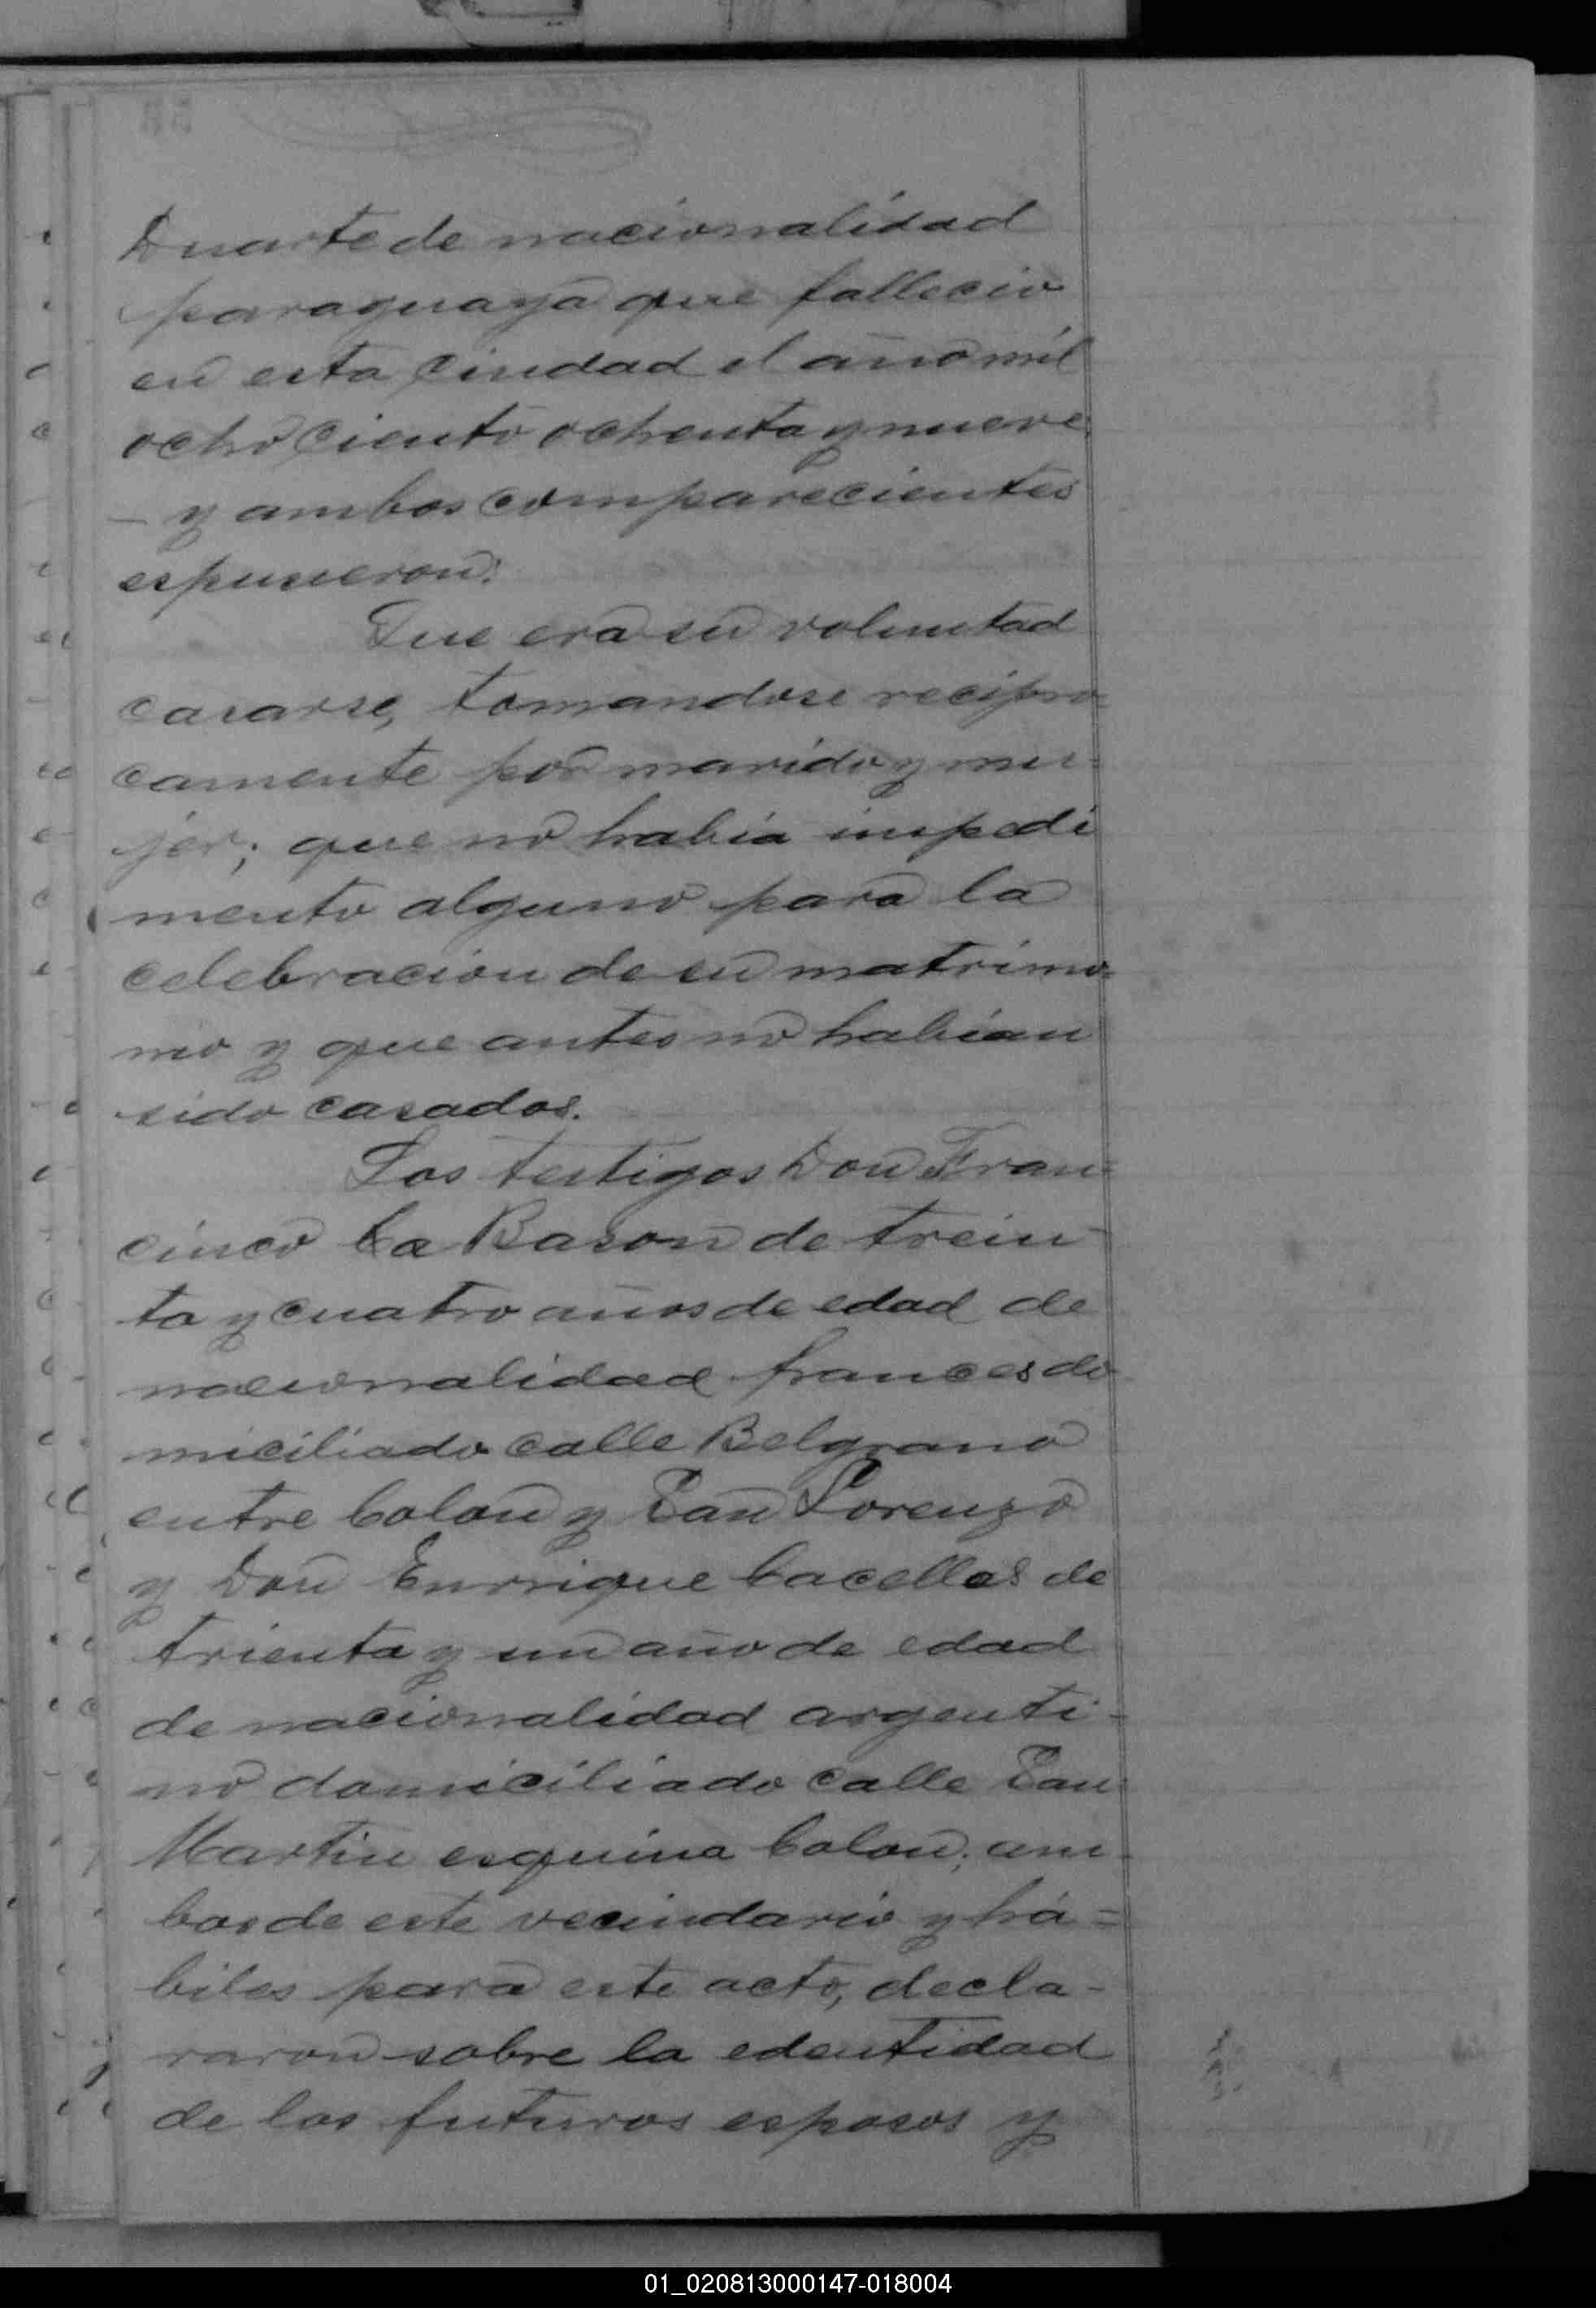 Duarte de nacionalidad
paraguaya que fallecio
en esta Ciudad el año mil
ocho Ciento ochenta y nueve
– y ambos comparecientes
espusieron:
Que era su voluntad
casarse, tomandose recipro=
camente por marido y mu=
jer; que no habia impedi
mento alguno para la
celebracion de su matrimo=
nio y que antes no habian
sido casados.
Los testigos Don Fran=
cisco La Bason de trein-
ta y cuatro años de edad de
nacionalidad frances do
miciliado calle Belgrano
entre Colon y San Lorenzo
y Don Enrrique Cacellas de
trienta y un año de edad
de nacionalidad argenti-
no domiciliado calle San
Martin esquina Colon; am-
bos de este vecindario y há=
biles para este acto, decla-
raron sobre la edentidad
de los futuros esposos y
01_020813000147-018004